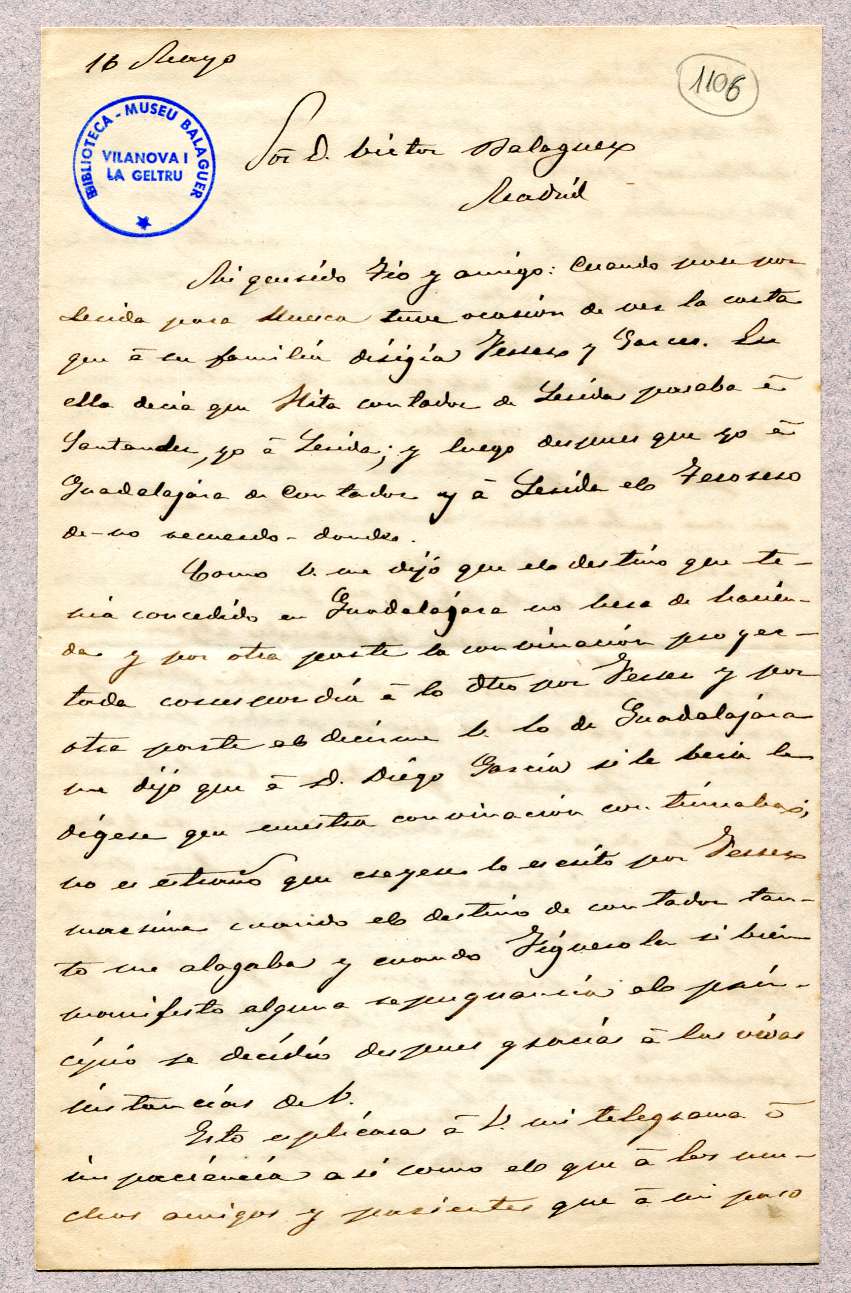 16 Mayo
1106
BIBLIOTECA - MUSEU BALAGUER
VILANOVA I
LA GELTRU
Sor D. Victor Balaguer
Madrid
Mi querido Tio y amigo: Cuando pase por
Lerida para Huesca tuve ocasión de ver la carta
que á su familia dirigía Ferrer y Garces. En
ella decia que Hita contador de Lerida pasaba á
Santander, yo á Lerida; y luego despues que yo á
Guadalajára de Contador y á Lerida el Tesorero
de - no recuerdo - donde.
Como V. me dijó que el destino que te-
nia concedido en Guadalajara no hera de hacien-
da y por otra parte la convinación proyec-
tada correspondiá á lo dho por Ferrer y por
otra parte el decirme V. lo de Guadalajára
me dijo que á D. Diégo García si le beia le
digese que nuestra convinación continuaba;
no es estraño que creyese lo escrito por Ferrer
maxime cuando el destino de contador tan-
to me alagaba y cuando Figuerola si bien
manifesto alguna repugnancia al prin-
cipio se decidió despues gracias á las vivas
instancias de V.
Esto esplicara á V. mi telegrama ó
impaciencia asi como el que á los mu-
chos amigos y parientes que á mi paso